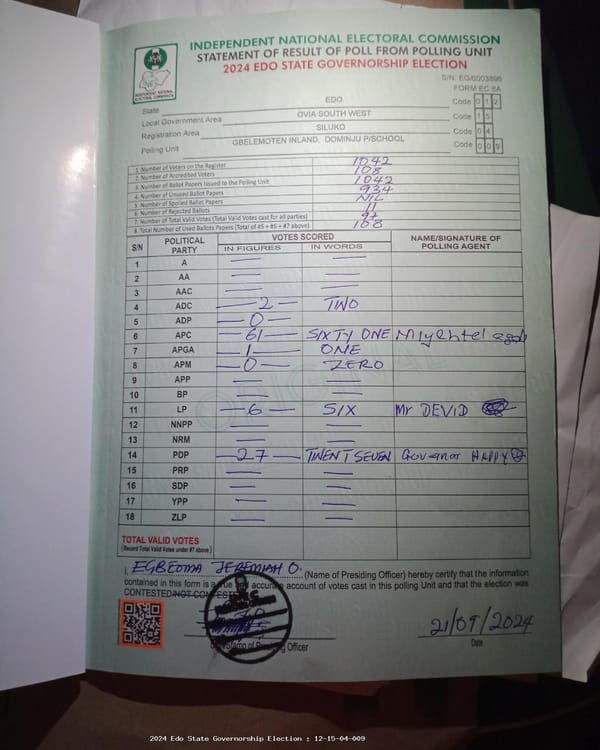 INDEPENDENT NATIONAL ELECTORAL COMMISSION
STATEMENT OF RESULT OF POLL FROM POLLING UNIT
2024 EDO STATE GOVERNORSHIP ELECTION
S/N: EG/0003898
FORM EC 8A
State EDO Code 0 1 2
Local Government Area OVIA SOUTH WEST Code 1 5
Registration Area SILUKO Code 0 4
Polling Unit GBELEMOTEN INLAND, DOMINJU P/SCHOOL Code 0 0 9
1. Number of Voters on the Register 1042
2. Number of Accredited Voters 108
3. Number of Ballot Papers Issued to the Polling Unit 1042
4. Number of Unused Ballot Papers 934
5. Number of Spoiled Ballot Papers NIL
6. Number of Rejected Ballots 11
7. Number of Total Valid Votes (Total Valid Votes cast for all parties) 97
8. Total Number of Used Ballots Papers (Total of #5 + #6 + #7 above) 108
S/N POLITICAL PARTY VOTES SCORED NAME/SIGNATURE OF POLLING AGENT
IN FIGURES IN WORDS
1 A — —
2 AA — —
3 AAC — —
4 ADC —2— TWO
5 ADP —0—
6 APC —61— SIXTY ONE
7 APGA —1— ONE
8 APM —0— ZERO
9 APP — —
10 BP — —
11 LP —6— SIX Mr DEVID
12 NNPP — —
13 NRM — —
14 PDP —27— TWENT SEVEN Governor HAPPY
15 PRP — —
16 SDP — —
17 YPP — —
18 ZLP — —
TOTAL VALID VOTES
(Record Total Valid Votes under #7 above)
I, EGBEOMA JEREMIAH O. (Name of Presiding Officer) hereby certify that the information
contained in this form is a true and accurate account of votes cast in this polling Unit and that the election was
CONTESTED/NOT CONTESTED
21/09/2024
Stamp of Presiding Officer Date
2024 Edo State Governorship Election : 12-15-04-009